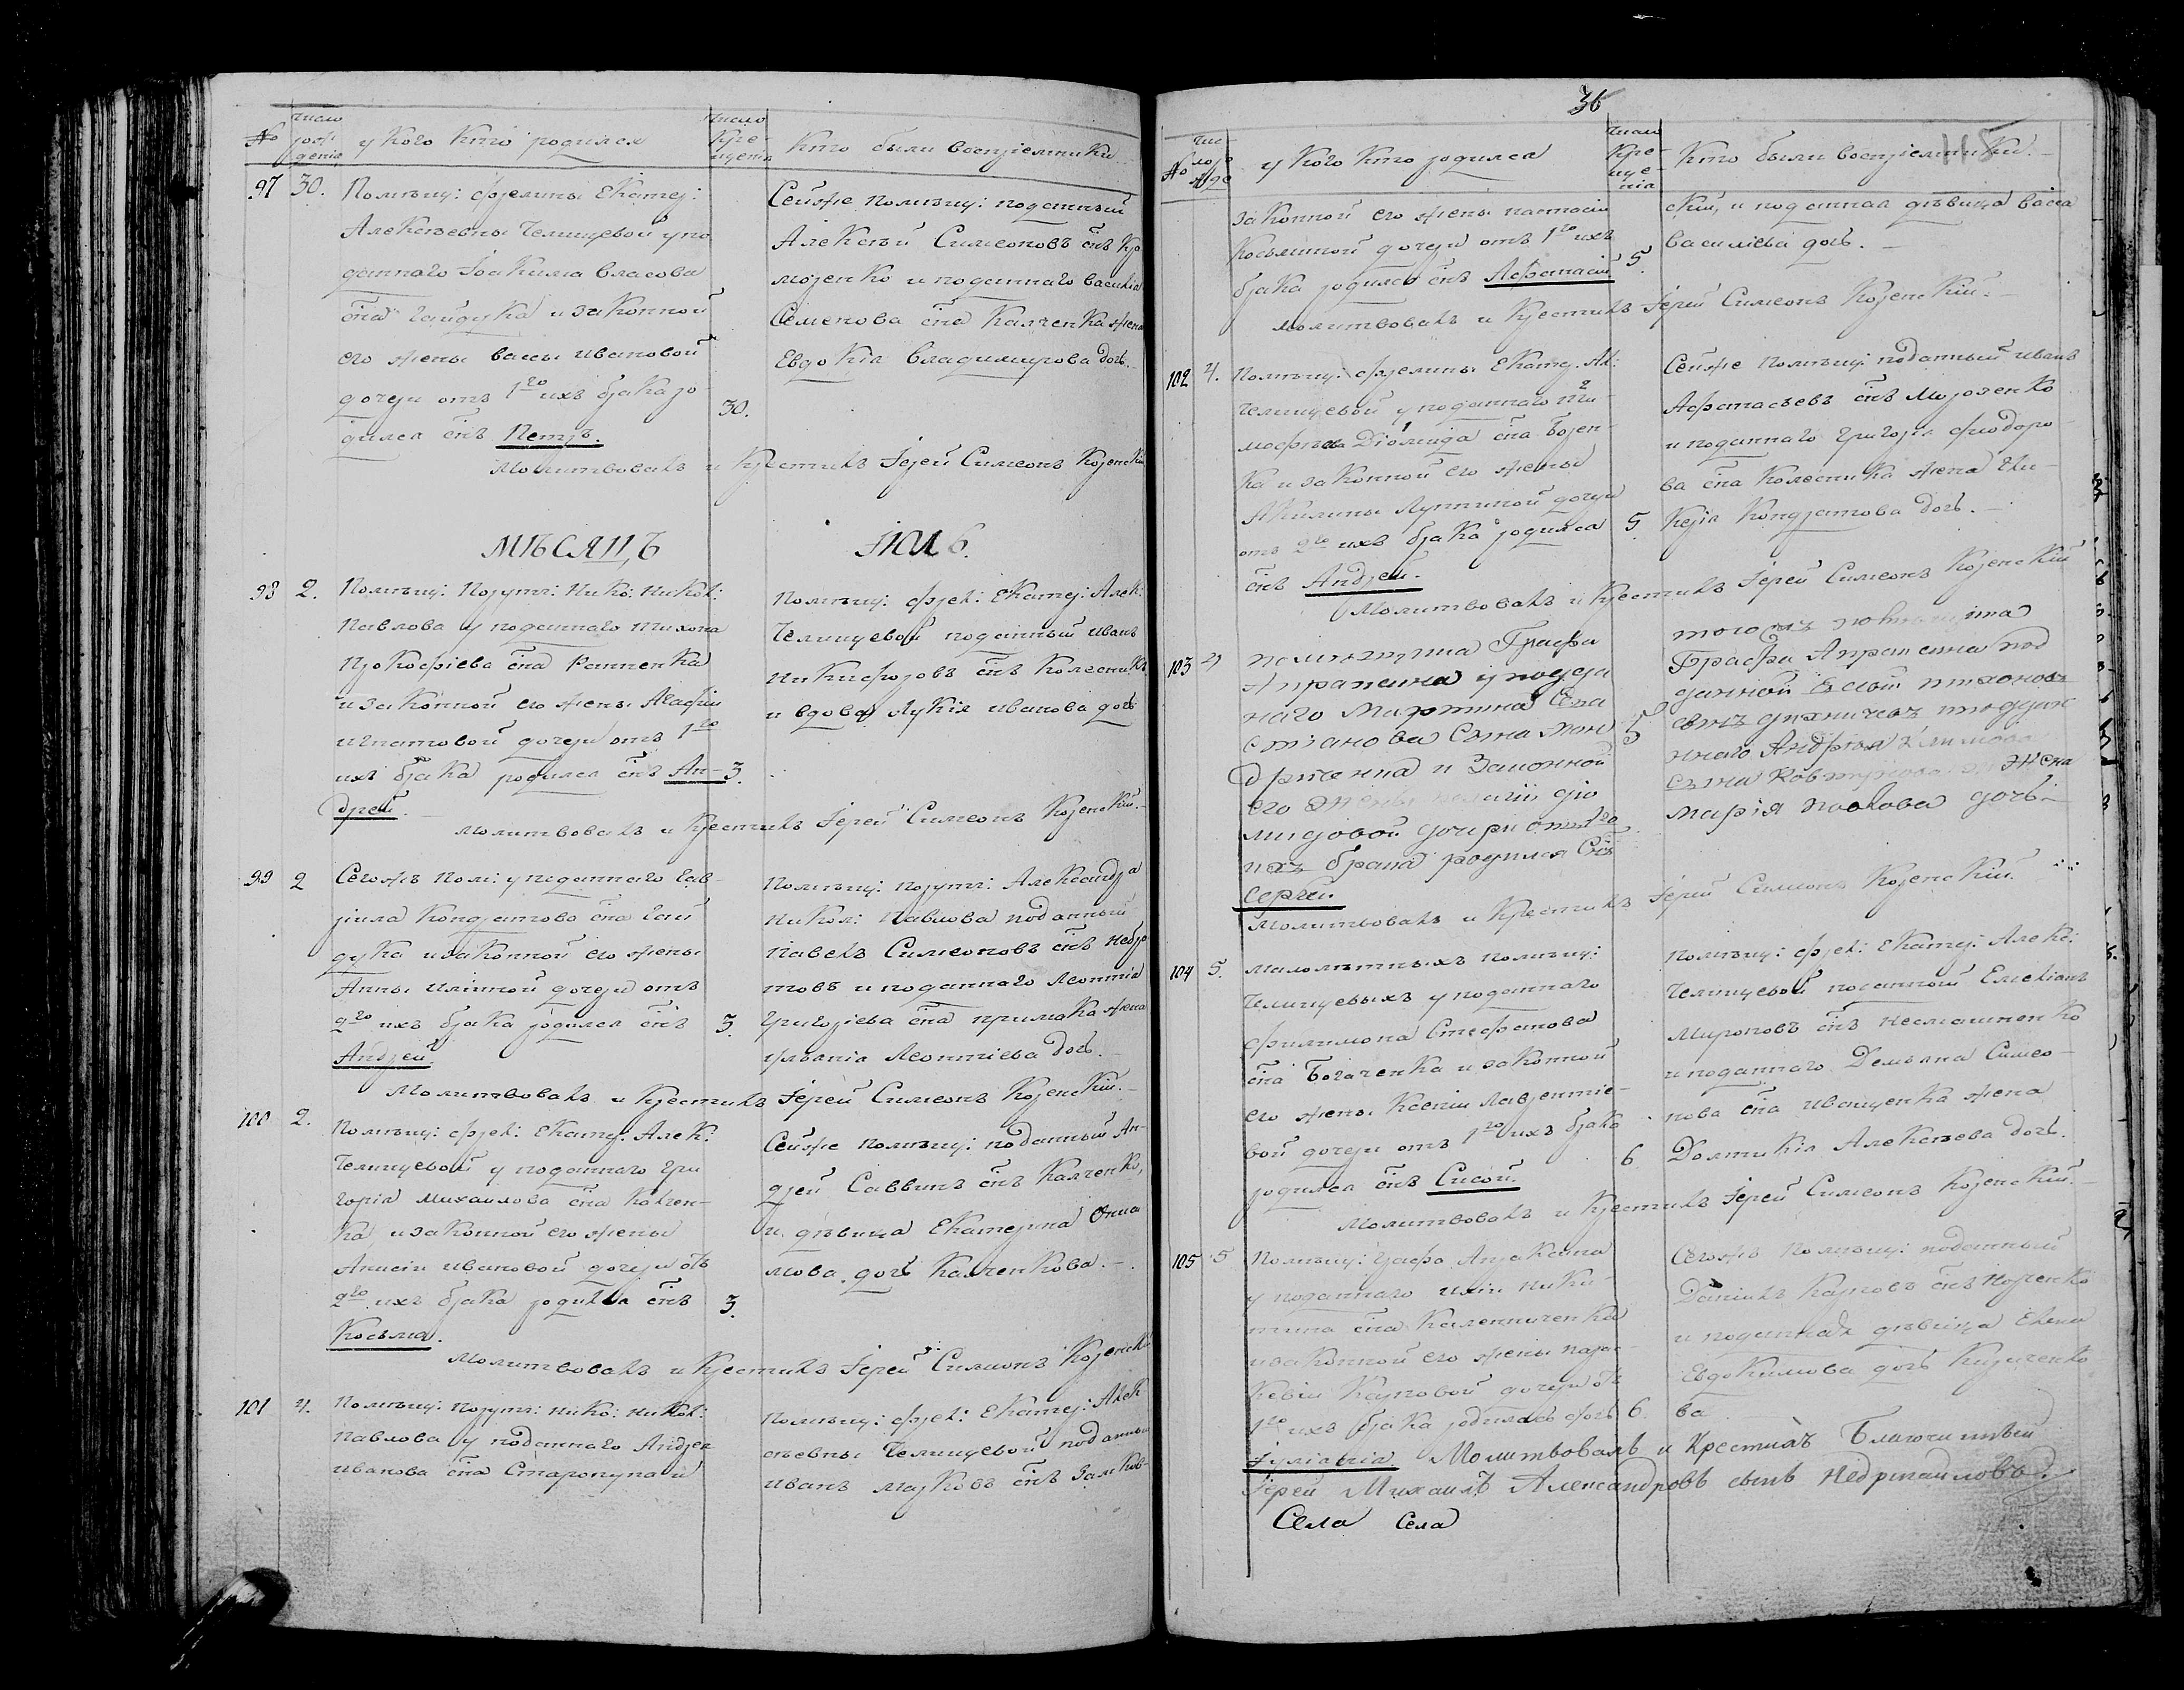 №
число
рож
денія
у кого кто родился
число
Кре-
щенія
Кто были воспріемники
97 30. Помѣщ: фрелины Екатер:
Алексѣевны Челищевой у по
данного Іоакима Власова
сна Гайдука и законной
его жены Вассы Ивановой
дочери отъ 1го ихъ брака ро
дился снъ Петръ.
30.
Сейже помѣщ: поданный
Алексѣй Симеоновъ снъ
и поданного Василія
Семенова сна Калченка жена
Евдокія Владимирова дочь.
Молитвовалъ и Крестилъ Іерей Симеонъ Коренскій
МѢСЯЦЪ ІЮЛЬ.
98 2. Помѣщ: Порутч: Нико: Никол:
Павлова у поданного Тихона
Прокофіева сна
и законной его жены Агафіи
Игнатовой дочери отъ 1го
ихъ брака родился снъ Ан-
дрей.
3.
Помѣщ: фрел: Екатер: Алек:
Челищевой поданный Иванъ
Никифоровъ снъ Колесникъ
и вдова Лукія Иванова дочь
Молитвовалъ и Крестилъ Іерей Симеонъ Коренскій.
99 2 Сегожъ пом: у поданного Гав-
ріила Кондратова сна Гай
дука и законной его жены
Анны Иліиной дочери отъ
2го ихъ брака родился снъ
Андрей.
3.
Помѣщ: порутч: Александра
Никол: Павлова поданный
Павелъ Симеоновъ снъ
и поданного Леонтія
Григоріева сна Примака жена
Леонтіева дочь.
Молитвовалъ и Крестилъ Іерей Симеонъ Коренскій.
100 2. Помѣщ: фрел: Екатер: Алек:
Челищевой у поданного Гри
горія Михаилова сна Колчен-
ка и законной его жены
Анисіи Ивановой дочери отъ
2го ихъ брака родился снъ
Косьма.
3.
Сейже помѣщ: поданный Ан-
дрей Саввинъ снъ Калченко,
и дѣвица Екатерина
дочь Калченкова.
Молитвовалъ и Крестилъ Іерей Симеонъ Коренскій
101 4. Помѣщ: порутч: Нико: Никол:
Павлова у поданного Андрея
Иванова сна
Помѣщ: фрел: Екатер: Алек
сѣевны Челищевой поданный
Иванъ Марковъ снъ
36
118
№
чис
ло
у кого кто родился
число
Кре-
ще-
нія
Кто были воспріемники.
законной его жены Настасіи
Косьминой дочери отъ 1го ихъ
брака родился снъ Афанасій
5.
скій, и поданная дѣвица Васса
Василіева дочь.
Молитвовалъ и Крестилъ Іерей Симеонъ Коренскій.
102 4. Помѣщ: фрелины Екатер. Ал:
Челищевой у поданного Ти-
мофѣева Діомида сна Борен-
ка и законной его жены
Акилины Лупиной дочери
отъ 2го ихъ брака родился
снъ Андрей.
5.
Сейже помѣщ: поданный Иванъ
Афанасьевъ снъ Морозенко
и поданного Григорія Фиодоро-
ва сна Колесника жена Гли-
керія Кондратова дочь.
Молитвовалъ и Крестилъ Іерей Симеонъ Коренскій
103 4 помѣщика Графа
Апраксина у поддан
наго Мартина
сына
и Законной
его жены Пелагіи Діо
мидовой дочери отъ
ихъ брака родился Снъ
Сергей.
5
того жъ помѣщика
Графа Апраксина под
данной Тихоновъ
сынъ
Андрѣя Климова
сына жена
Марія Павлова дочь
Молитвовалъ и Крестилъ Іерей Симеонъ Коренскій.
104 5. Малолѣтныхъ помѣщ:
Челищевыхъ у поданного
Филимона Стефанова
сна Богаченка и законной
его жены Ксеніи Лаврентіе-
вой дочери отъ 1го ихъ брака
родился снъ Сисой.
6
Помѣщ: фрел: Екатер: Алек:
Челищевой поданной Емеліанъ
Мироновъ снъ
и поданного Демьяна Симео-
нова сна Иващенка жена
Домникія Алексѣева дочь.
Молитвовалъ и Крестилъ Іерей Симеонъ Коренскій.
105 5 Помѣщ: Графа Апраксина
у поданного Иліи Ники-
тина сна Калениченка
и законной его жены Парас-
кевіи Карповой дочери отъ
1го ихъ брака родилась дочь
Іуліанія
6.
Сегожъ помѣщ: поданный
Даніилъ Карповъ снъ
и поданная дѣвица Елена
Евдокимова дочь Кириченко
ва
Молитвовалъ и Крестилъ Благочинный
Іерей Михаилъ Александровъ сынъ
Села Села